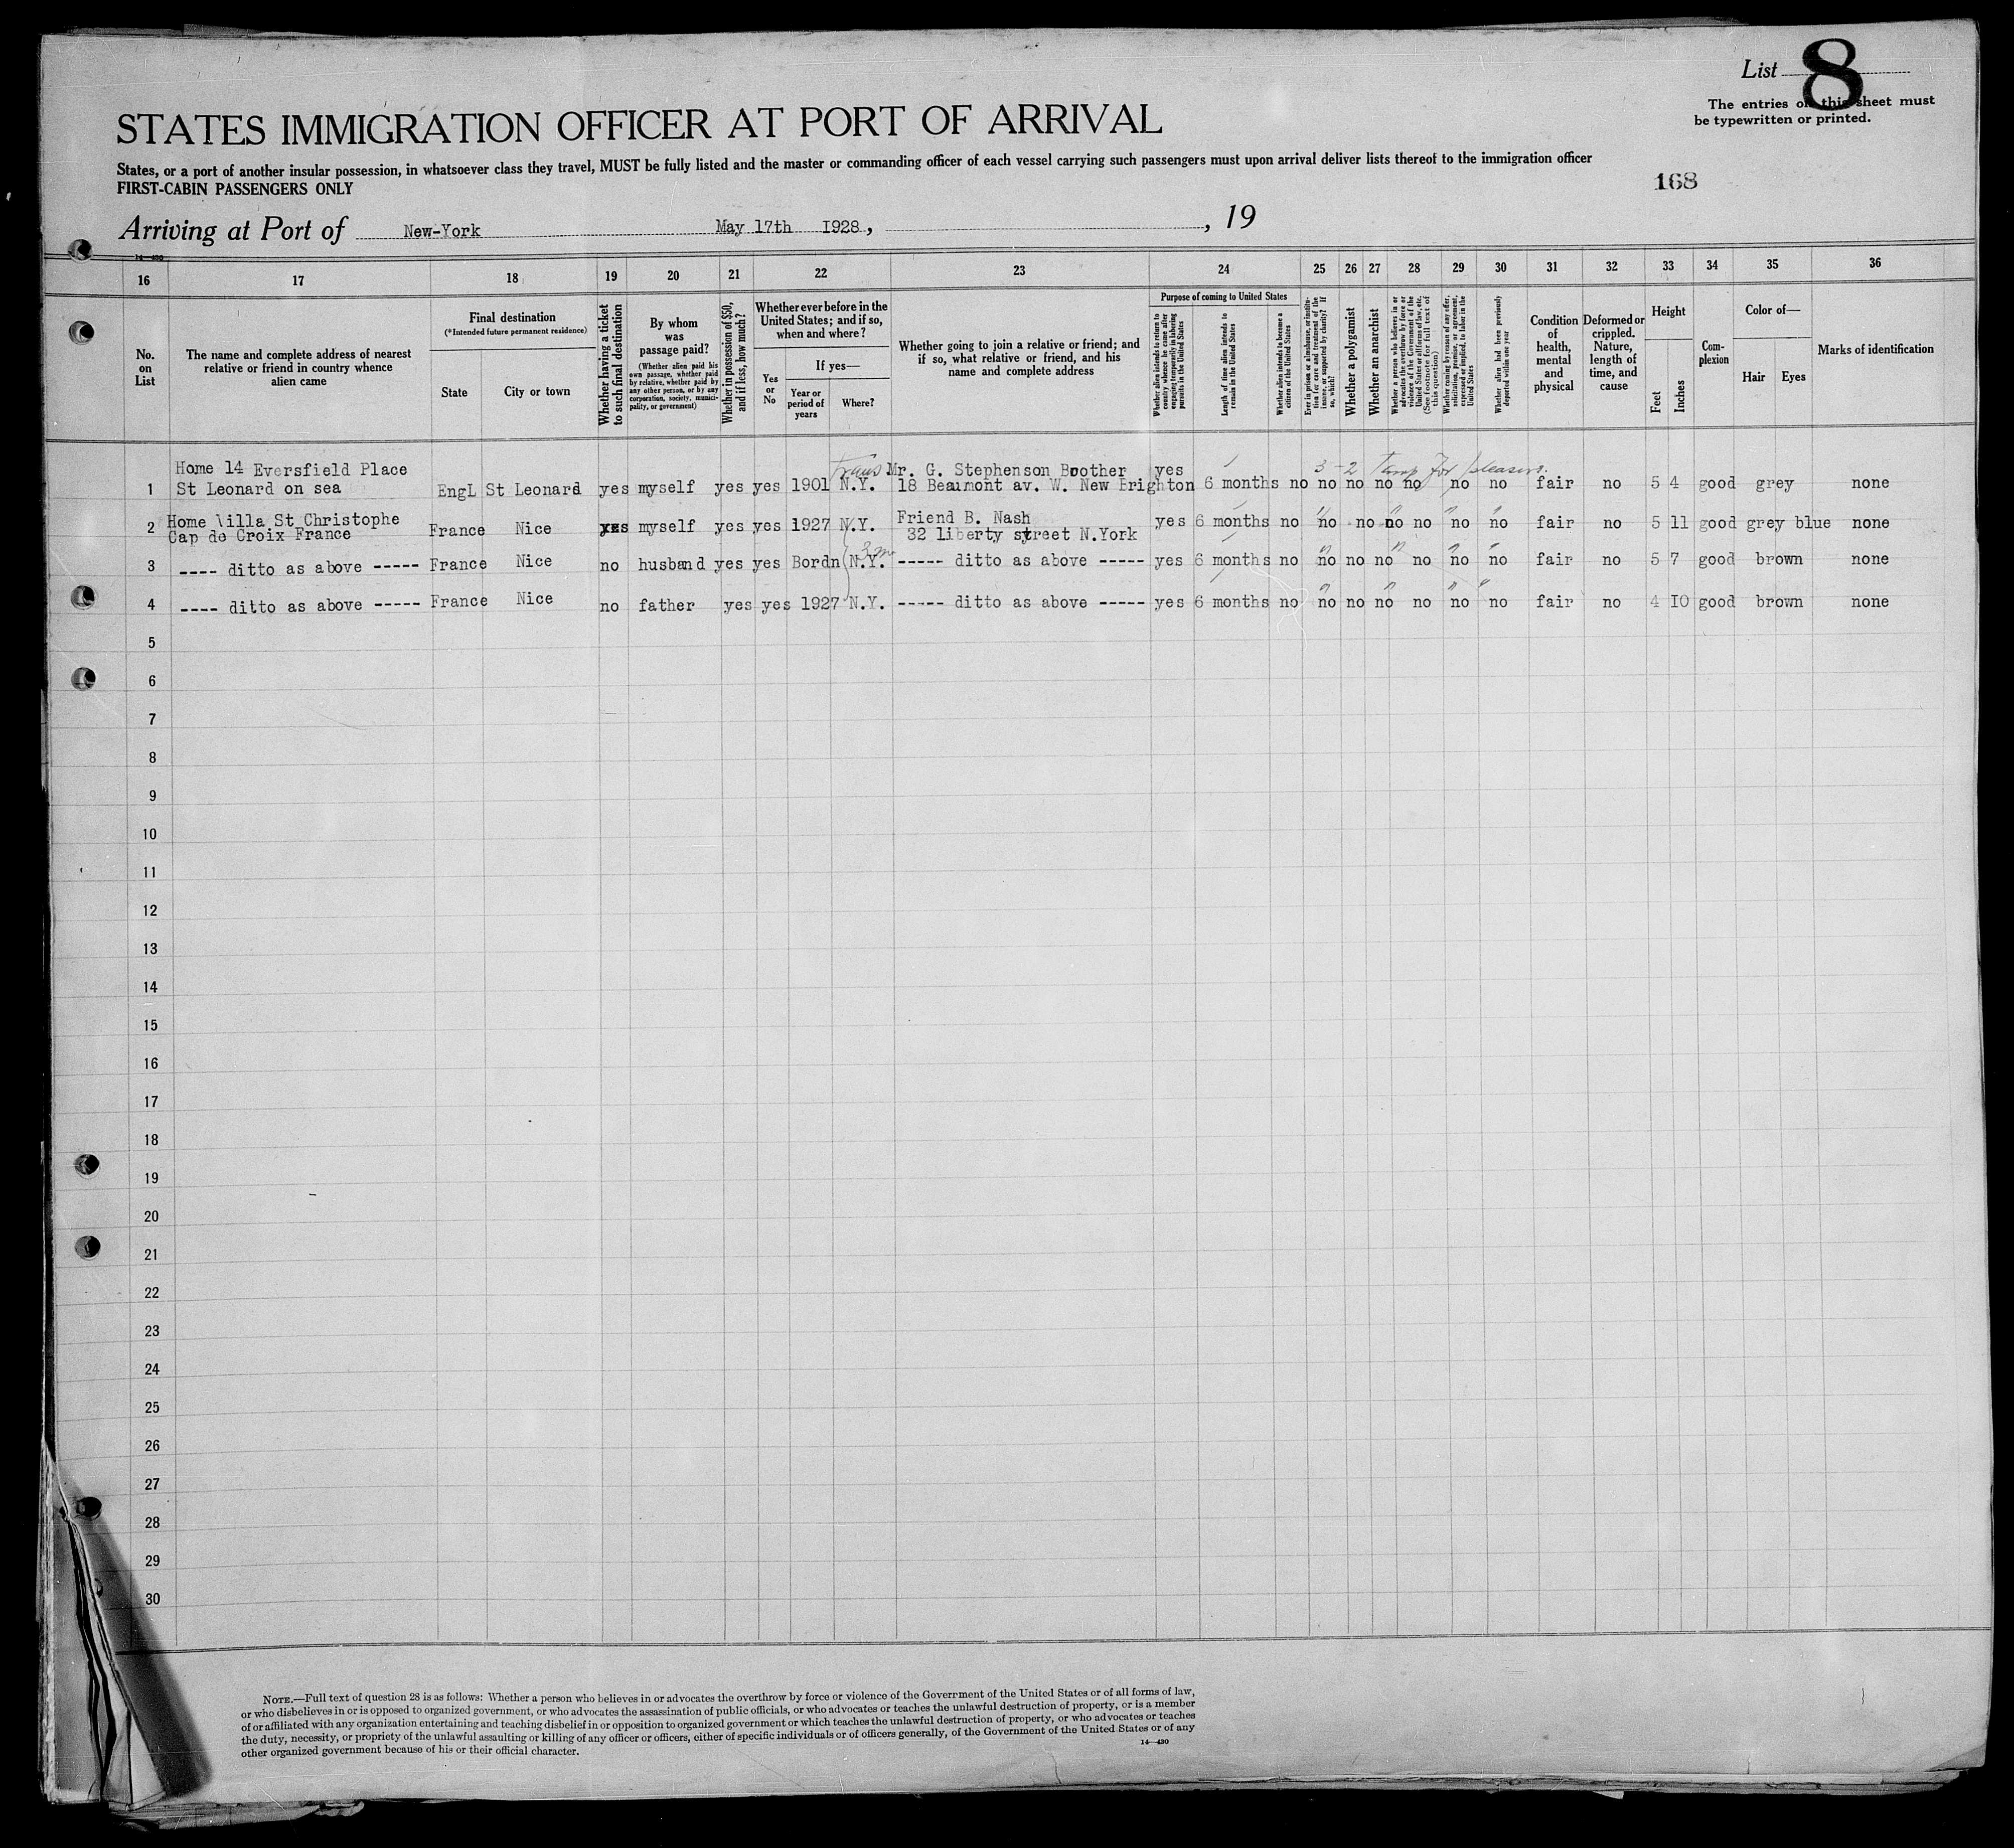 List 8
The entries on this sheet must
be typewritten or printed.
STATES IMMIGRATION OFFICER AT PORT OF ARRIVAL
States, or a port of another insular possession, in whatsoever class they travel, MUST be fully listed and the master or commanding officer of each vessel carrying such passengers must upon arrival deliver lists thereof to the immigration officer
FIRST-CABIN PASSENGERS ONLY
168
Arriving at Port of New-York May 17th 1928, , 19
14-430
16 17 18 19 20 21 22 23 24 25 26 27 28 29 30 31 32 33 34 35 36
No. on List
The name and complete address of nearest
relative or friend in country whence
alien came
Final destination
(*Intended future permanent residence)
State
City or town
Whether having a ticket
to such final destination
By whom
was
passage paid?
(Whether alien paid his
own passage, whether paid
by relative, whether paid by
any other person, or by any
corporation, society, munici-
pality, or government)
Whether in possession of $50,
and if less, how much?
Whether ever before in the
United States; and if so,
when and where?
Yes
or
No
If yes—
Year or
period of
years
Where?
Whether going to join a relative or friend; and
if so, what relative or friend, and his
name and complete address
Purpose of coming to United States
Whether alien intends to return to
country whence he came after
engaging temporarily in laboring
pursuits in the United States
Length of time alien intends to
remain in the United States
Whether alien intends to become a
citizen of the United States
Ever in prison or almshouse, or institu-
tion for care and treatment of the
insane, or supported by charity? If
so, which?
Whether a polygamist
Whether an anarchist
Whether a person who believes in or
advocates the overthrow by force or
violence of the Government of the
United States or all forms of law, etc.
(See footnote for full text of
this question)
Whether coming by reason of any offer,
solicitation, promise, or agreement,
expressed or implied, to labor in the
United States
Whether alien had been previously
deported within one year
Condition
of
health,
mental
and
physical
Deformed or
crippled.
Nature,
length of
time, and
cause
Height
Feet
Inches
Com-
plexion
Color of—
Hair
Eyes
Marks of identification
Home 14 Eversfield Place Trans Mr. G. Stephenson Brother yes 3-2 Temp for pleasure.
1 St Leonard on sea EngL St Leonard yes myself yes yes 1901 N.Y. 18 Beaumont av. W. New Brighton 6 months no no no no no no no fair no 5 4 good grey none
Home Villa St Christophe Friend B. Nash
2 Cap de Croix France France Nice yes myself yes yes 1927 N.Y. 32 liberty street N.York yes 6 months no no no no no no no fair no 5 11 good grey blue none
3 ---- ditto as above ----- France Nice no husband yes yes Bordn N.Y. ----- ditto as above ----- yes 6 months no no no no no no no fair no 5 7 good brown none
4 ---- ditto as above ----- France Nice no father yes yes 1927 N.Y. ----- ditto as above ----- yes 6 months no no no no no no no fair no 4 IO good brown none
5
6
7
8
9
10
11
12
13
14
15
16
17
18
19
20
21
22
23
24
25
26
27
28
29
30
NOTE.—Full text of question 28 is as follows: Whether a person who believes in or advocates the overthrow by force or violence of the Government of the United States or of all forms of law,
or who disbelieves in or is opposed to organized government, or who advocates the assassination of public officials, or who advocates or teaches the unlawful destruction of property, or is a member
of or affiliated with any organization entertaining and teaching disbelief in or opposition to organized government or which teaches the unlawful destruction of property, or who advocates or teaches
the duty, necessity, or propriety of the unlawful assaulting or killing of any officer or officers, either of specific individuals or of officers generally, of the Government of the United States or of any
other organized government because of his or their official character.
14-430